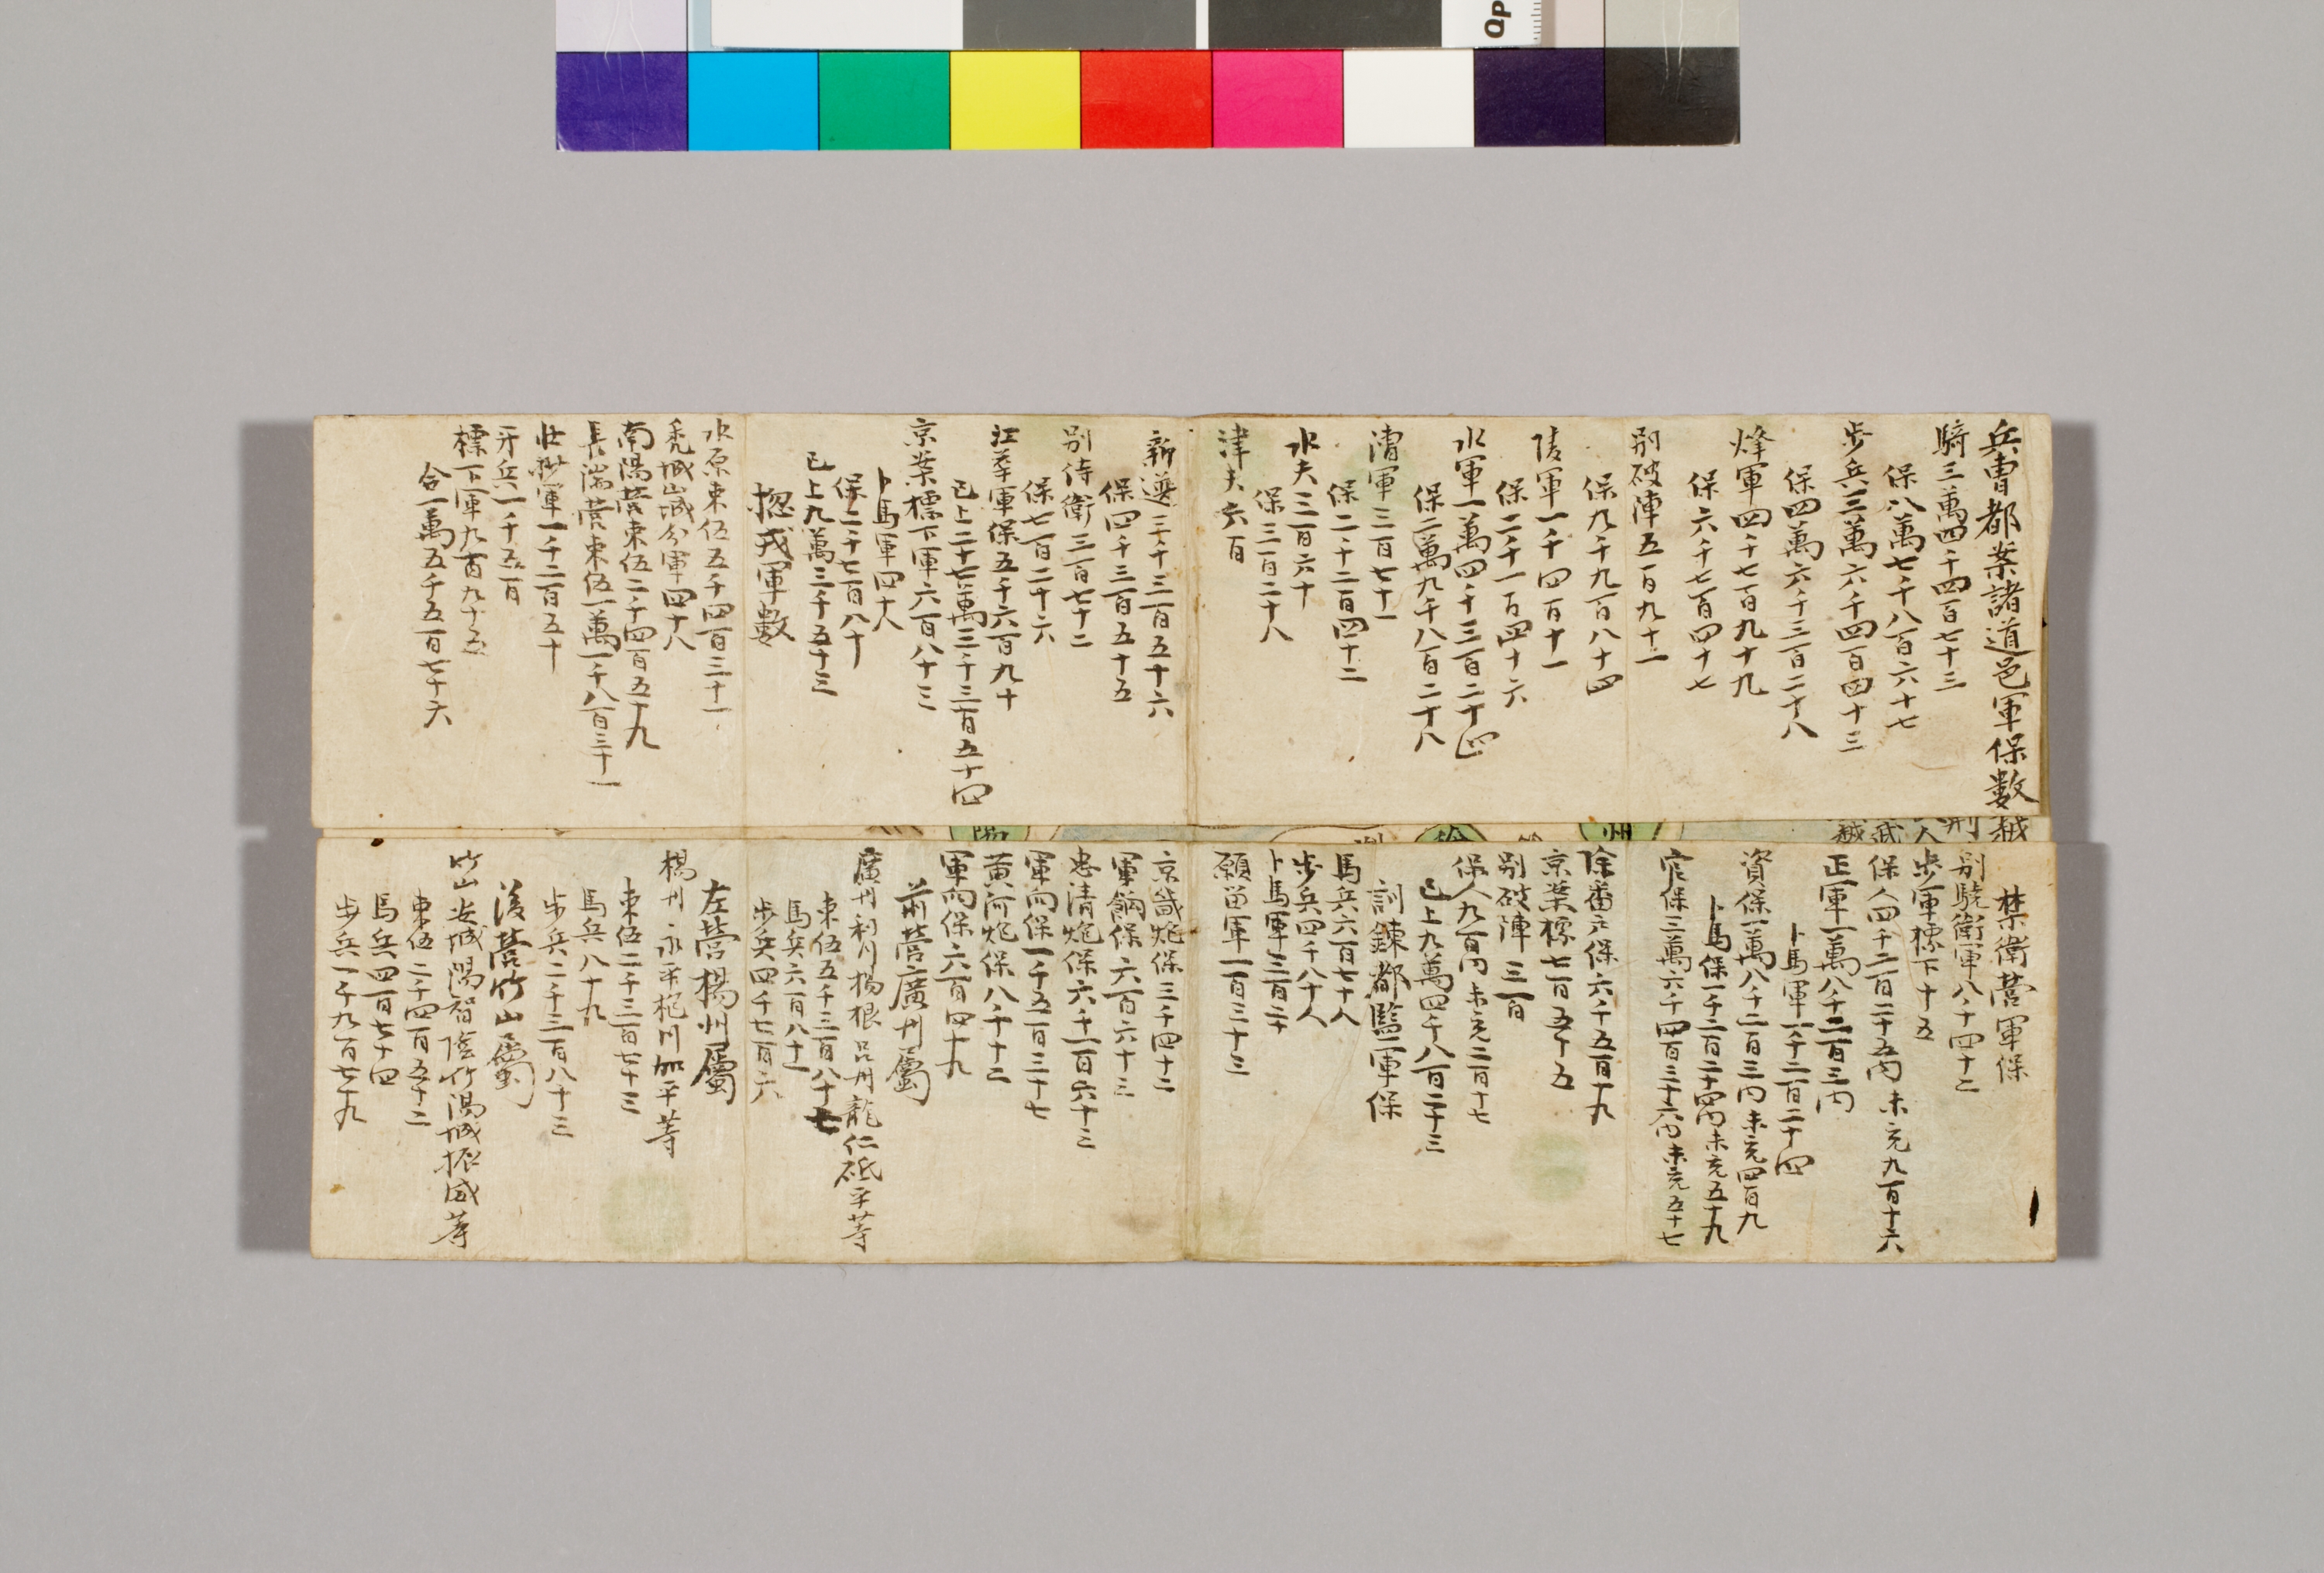 兵曺都案諸道邑軍保數
騎三萬四千四百七十三
保八萬七千八百六十七
步兵三萬六千四百四十三
保四萬六千三百二十八
烽軍四千七百九十九
保六千七百四十七
別破陣五百九十一
保九千九百八十四
陵軍一千四百十一
保二千一百四十六
水軍一萬四千三百二十四
保二萬九千八百二十八
漕軍三百七十一
保二千二百四十二
水夫三百六十
保三百二十八
津夫六百
新選三千三百五十六
保四千三百五十五
別侍衛三百七十二
保七百二十六
江華軍保五千六百九十
已上二十七萬三千三百五十四
京案標下軍六百八十三
卜馬軍四十八
保二千七百八十
已上九萬三千五十三
摠戎軍數
水原束伍五千四百三十一
禿城山城分軍四十八
南陽營束伍二千四百五十九
長湍營束伍一萬一千八百三十一
壯抄軍一千二百五十
牙兵一千五百
標下軍九百九十五
合一萬五千五百七十六
禁衛營軍保
別驍衛軍八千四十二
步軍標下十五
保人四千二百二十五內未充九百十六
正軍一萬八千二百三內
卜馬軍一千二百二十四
資保一萬八千二百三內未充四百九
卜馬保一千二百二十四內未充五十九
官保三萬六千四百三十六內未充五十七
除番戶保六千五百十九
京案標七百五十五
別破陣三百
保人九百內未充二百十七
已上九萬四千八百二十三
訓鍊都監軍保
馬兵六百七十八
步兵四千八十八
卜馬軍三百二十
願留軍一百三十三
京畿炮保三千四十二
軍餉保六百六十三
忠清炮保六千一百六十三
軍餉保一千五百三十七
黃河炮保八千十二
軍餉保六百四十九
前營廣州屬
廣州利川楊根呂州龍仁砥平等
束伍五千三百八十七
馬兵六百八十一
步兵四千七百六
左營楊州屬
楊州永平抱川加平等
束伍二千三百七十三
馬兵八十九
步兵二千三百八十三
後營竹山屬
竹山安城陽智陰竹陽城振威等
束伍二千四百五十二
馬兵四百七十四
步兵一千九百七十九